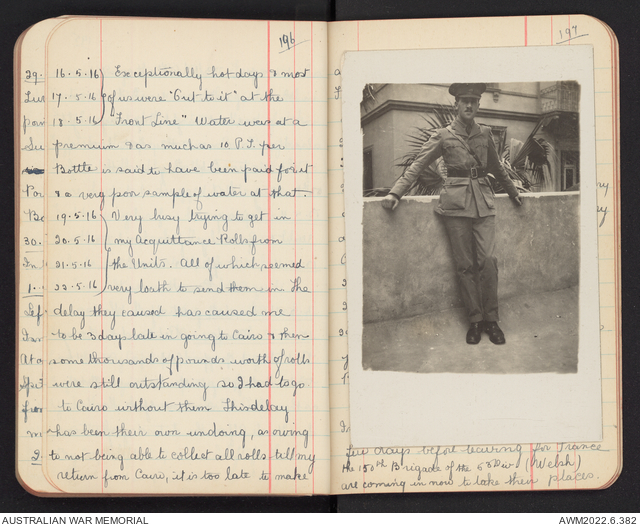 196
16.5.16 Exceptionally hot days & most
17.5.16 of us were "Out to it" at the
18.5.16 "Front Line" Water was at a
premium & as much as 10 P.T. per
Bottle is said to have been paid for it
& a very poor sample of water at that.
19.5.16 Very busy trying to get in
20.5.16 my Acquittance Rolls from
21.5.16 the Units. All of which seemed
22.5.16 very loath to send them in The
delay they caused has caused me
to be 3 days late in going to Cairo & then
some thousands of pounds worth of rolls
were still outstanding so I had to go
to Cairo without them This delay
has been their own undoing, as owing
to not being able to collect all rolls till my
return from Cairo, it is too late to make
197
few days before leaving for France
the 150th Brigade of the 53 Div (Welsh)
are coming in now to take their places.
AUSTRALIAN WAR MEMORIAL
AWM2022.6.382